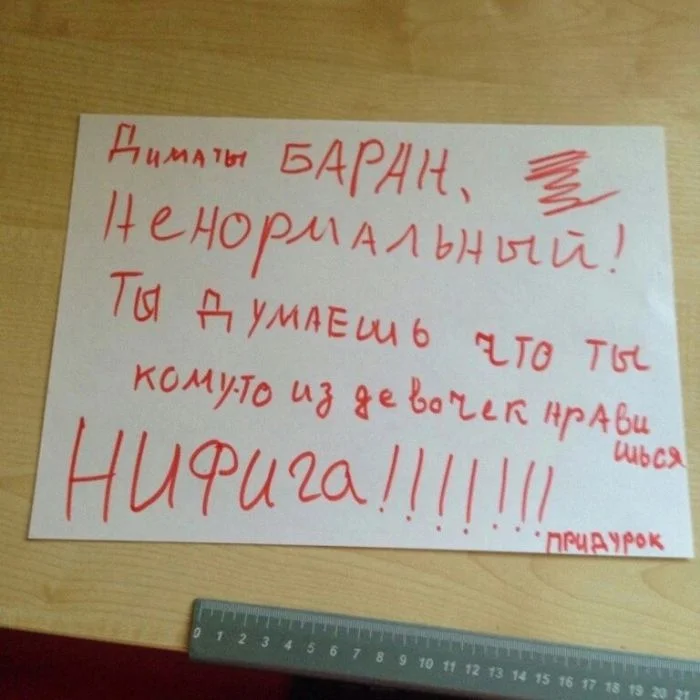 Диматы БАРАН,
Ненормальный!
Ты думаешь что ты
кому-то из девочек нрави
шься
НИФига!!!!!!!!
придурок
0 1 2 3 4 5 6 7 8 9 10 11 12 13 14 15 16 17 18 19 20 21